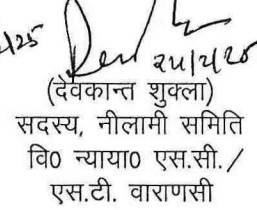 24/2/25
(देवकान्त शुक्ला)
सदस्य, नीलामी समिति
वि0 न्याया0 एस.सी./
एस.टी. वाराणसी